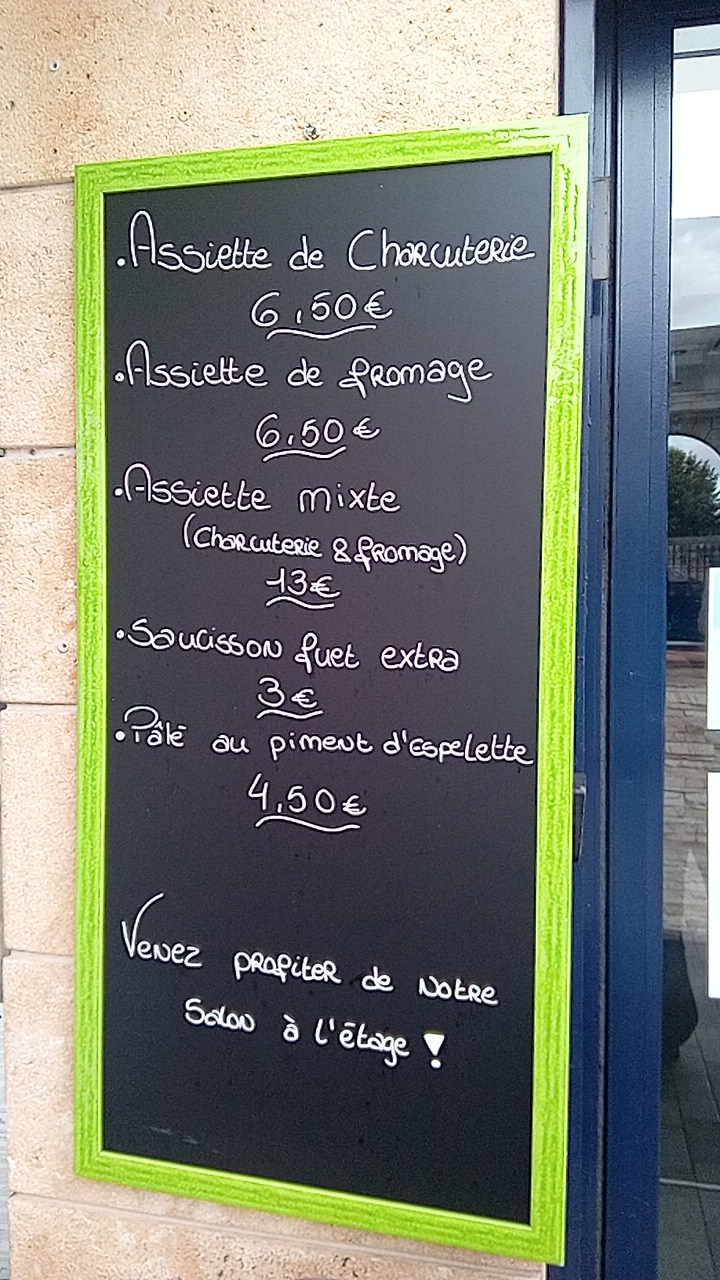 .Assiette de Charcuterie
6,50€
.Assiette de fromage
6,50€
.Assiette mixte
(Charcuterie & fromage)
13€
.Saucisson fuet extra
3€
.Pâté au piment d'espelette
4,50€
Venez profiter de notre
Salon à l'étage !